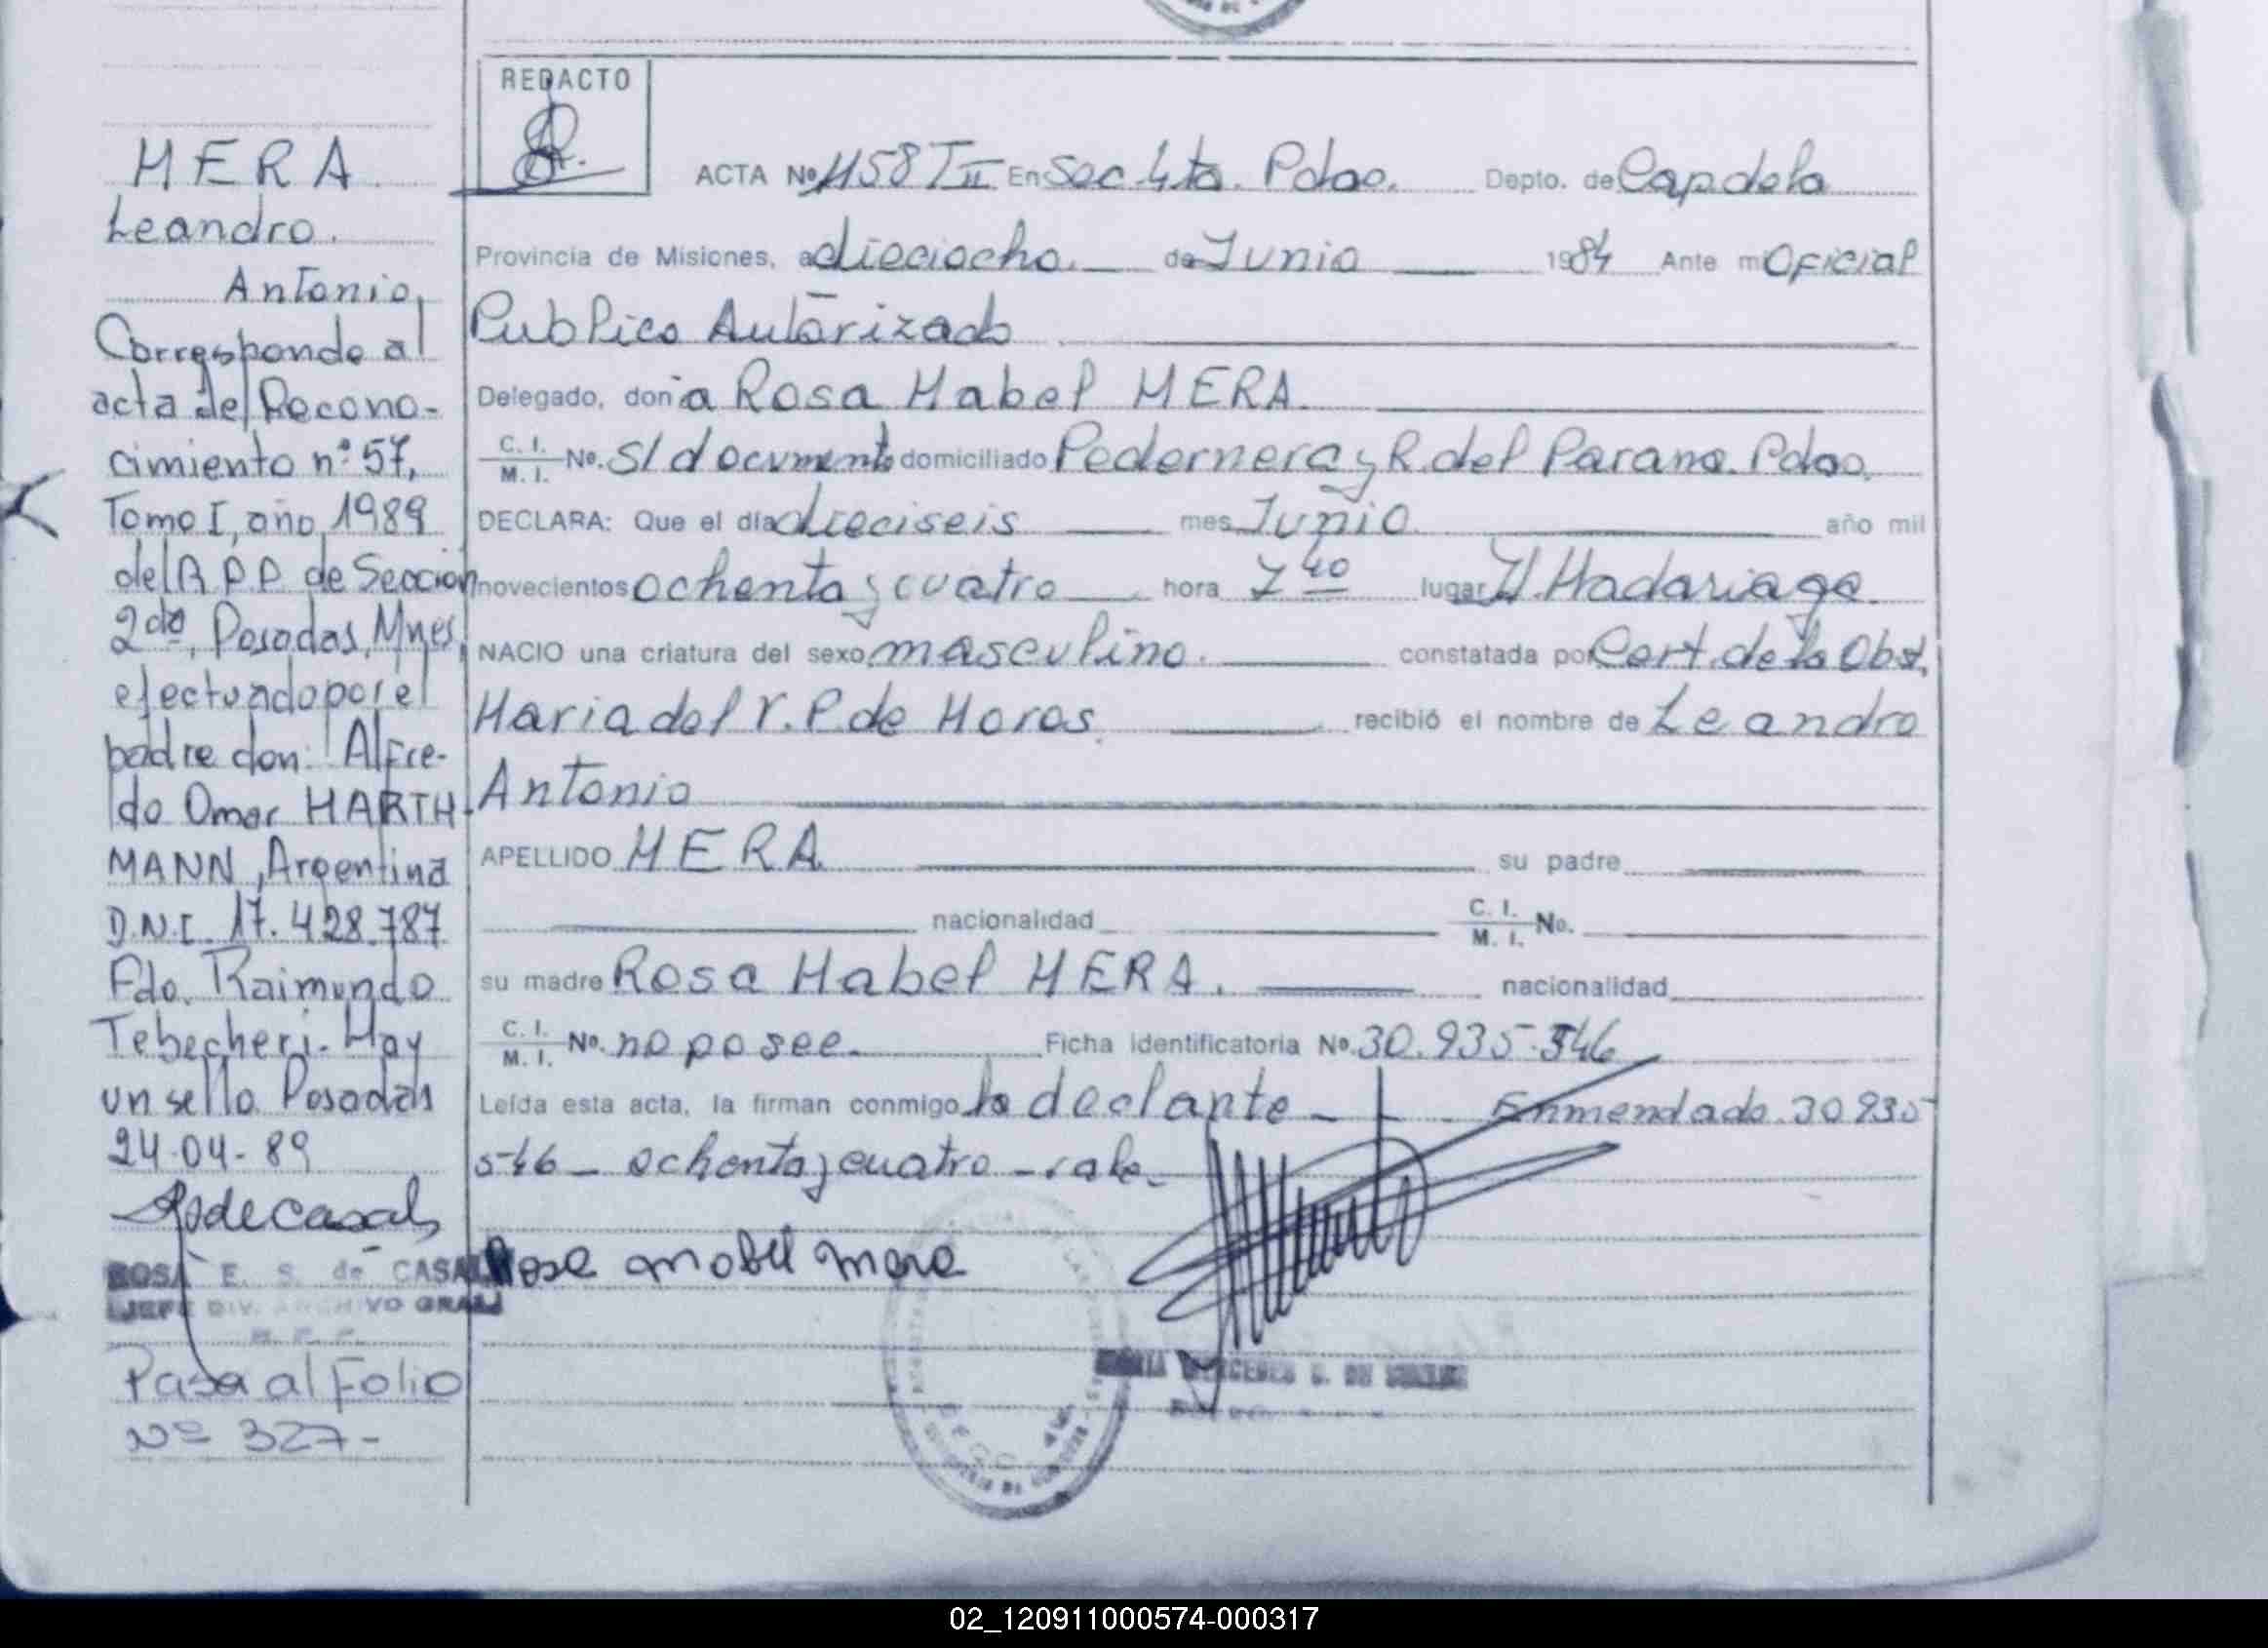 REDACTO
MERA
Leandro.
Antonio,
Corresponde al
acta del Recono-
cimiento nº 57,
Tomo I, año 1989
del R.P.P. de Seccion
2da, Posadas, Mnes,
efectuado por el
padre don: Alfre-
do Omar HARTH-
MANN, Argentina
D.N.I. 17.428.787
Fdo. Raimundo
Tebecheri. Hay
un sello Posadas
24-04-89
ROSA E. S. de CASAL
JEFE DIV. ARCHIVO GRAL
Pasa al Folio
Nº 327-
ACTA Nº 1158 T II En Sec 4ta. Pdas. Depto. de Cap. de la
Provincia de Misiones, a dieciocho. de Junio 1984 Ante mi Oficial
Publico Autorizado
Delegado, don a Rosa Mabel MERA.
C. I. / M. I. Nº. S/documento domiciliado Pedernera y R. del Parana. Pdas.
DECLARA: Que el día dieciseis mes Junio año mil
novecientos ochenta y cuatro hora 7 40 lugar H. Madariaga
NACIO una criatura del sexo masculino. constatada por Cert. de la Obst.
Maria del V. P. de Moras recibió el nombre de Leandro
Antonio
APELLIDO MERA su padre
nacionalidad C. I. / M. I. No.
su madre Rosa Mabel MERA. nacionalidad
C. I. / M. I. Nº. no posee. Ficha identificatoria Nº. 30.935.546
Leída esta acta, la firman conmigo la declante - Enmendado 30 935
546 - ochenta y cuatro - vale.
Rosa mabel mera
02_120911000574-000317